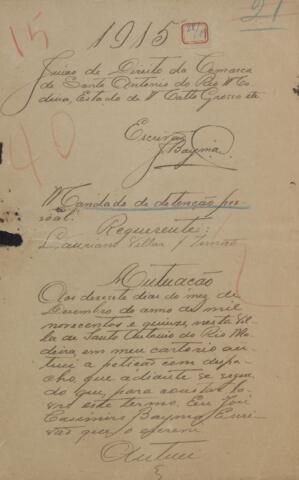 15
1915
21
Juizo de Direito da Comarca
de Santo Antonio do Rio Ma
deira, Estado de Matto Grosso etc
Escrivão
J. Bayma
40
Mandado de detenção pes-
soal.
Requerente:
Lauriano Villar / Irmão
Autuação
Aos dezesete dias do mez de
Dezembro do anno de mil
novecentos e quinze, nesta Vil-
la de Santo Antonio do Rio Ma
deira, em meu cartorio au
tuei a petição com despa
cho, que adiante se segue
do que, para constar la-
vro este termo. Eu José
Casimiro Bayma Escri-
vão que o escrevi
Autuei